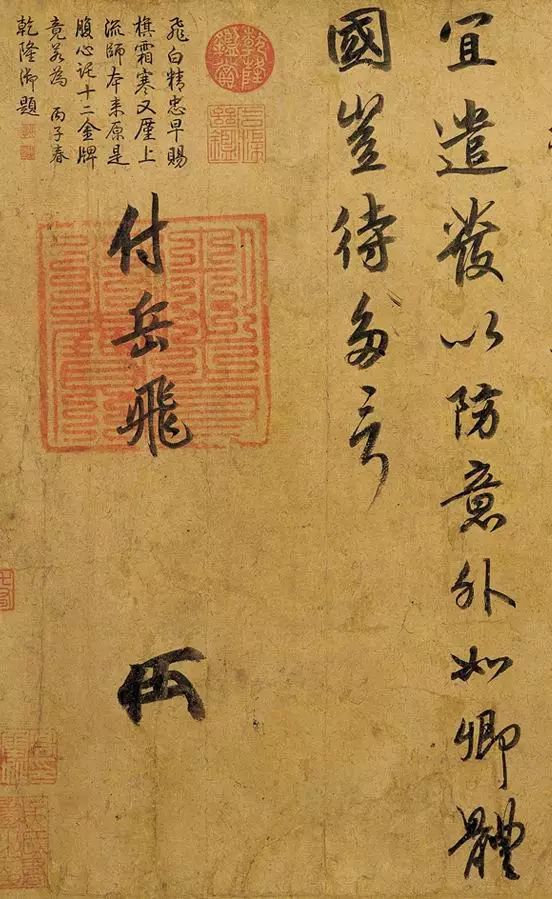 宜遣發以防意外如卿體
國豈待多言
付岳飛
乾隆鑑賞
飛白精忠早賜
旗霜寒又歷上
流師本來原是
腹心託十二金牌
竟若為 丙子春
乾隆御題